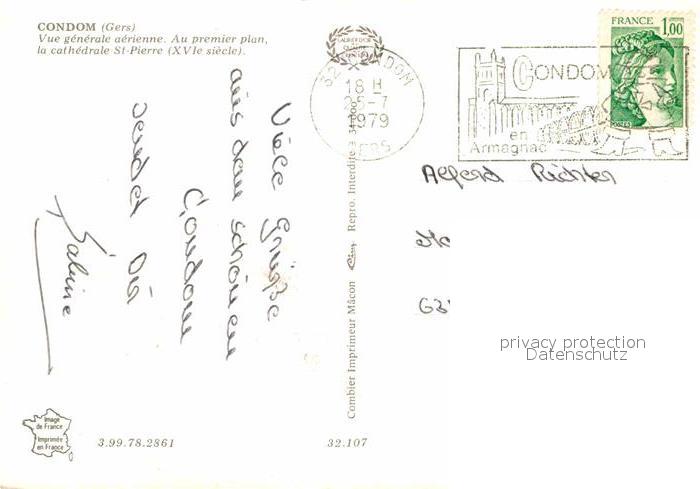 CONDOM (Gers)
Vue générale aérienne. Au premier plan,
la cathédrale St-Pierre (XVIe siècle).
Viele Grüße
aus dem schönen
Condom
sendet Dir
Sabine
Combier Imprimeur Mâcon Cim Repro. Interdite
32 CONDOM
18 H
25-7
1979
GERS
CONDOM
en
Armagnac
FRANCE 1,00
POSTES
Alford Richter
privacy protection
Datenschutz
Image
de France
Imprimée
en France
3.99.78.2861
32.107